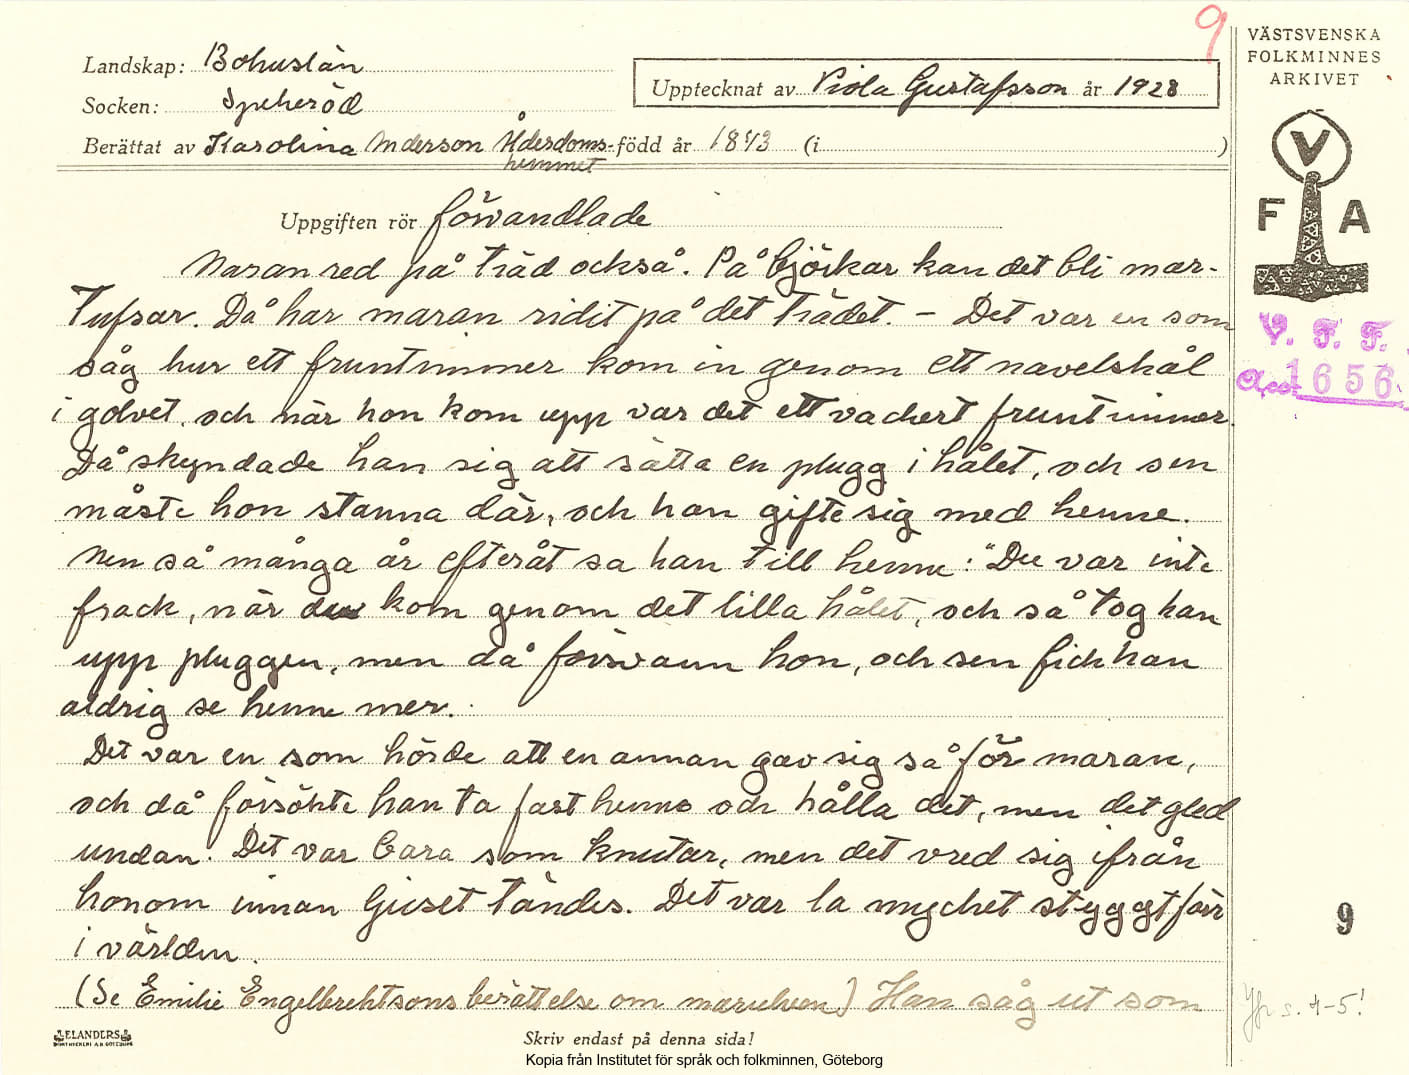 9
VÄSTSVENSKA
FOLKMINNES
ARKIVET
Landskap: Bohuslän
Socken: Spekeröd
Upptecknat av Viola Gustafsson år 1928
Berättat av Karolina Anderson Ålderdoms-
hemmet
född år 1843 (i )
V
F A
V. F. F.
Acc. 1656
Uppgiften rör förvandlade
Maran red på träd också. På björkar kan det bli mar-
tufsar. Då har maran ridit på det trädet. – Det var en som
såg hur ett fruntimmer kom in genom ett navelshål
i golvet, och när hon kom upp var det ett vackert fruntimmer.
Då skyndade han sig att sätta en plugg i hålet, och sen
måste hon stanna där, och han gifte sig med henne.
Men så många år efteråt sa han till henne: "Du var inte
frack, när du kom genom det lilla hålet, och så tog han
upp pluggen, men då försvann hon, och sen fick han
aldrig se henne mer.
Det var en som hörde att en annan gav sig så för maran,
och då försökte han ta fast henne och hålla det, men det gled
undan. Det var bara som knutar, men det vred sig ifrån
honom innan ljuset tändes. Det var la mycket styggt förr
i världen.
(Se Emilie Engelbrektsons berättelse om marulven) Han såg ut som
9
Jfr s. 4-5!
ELANDERS
Skriv endast på denna sida!
Kopia från Institutet för språk och folkminnen, Göteborg